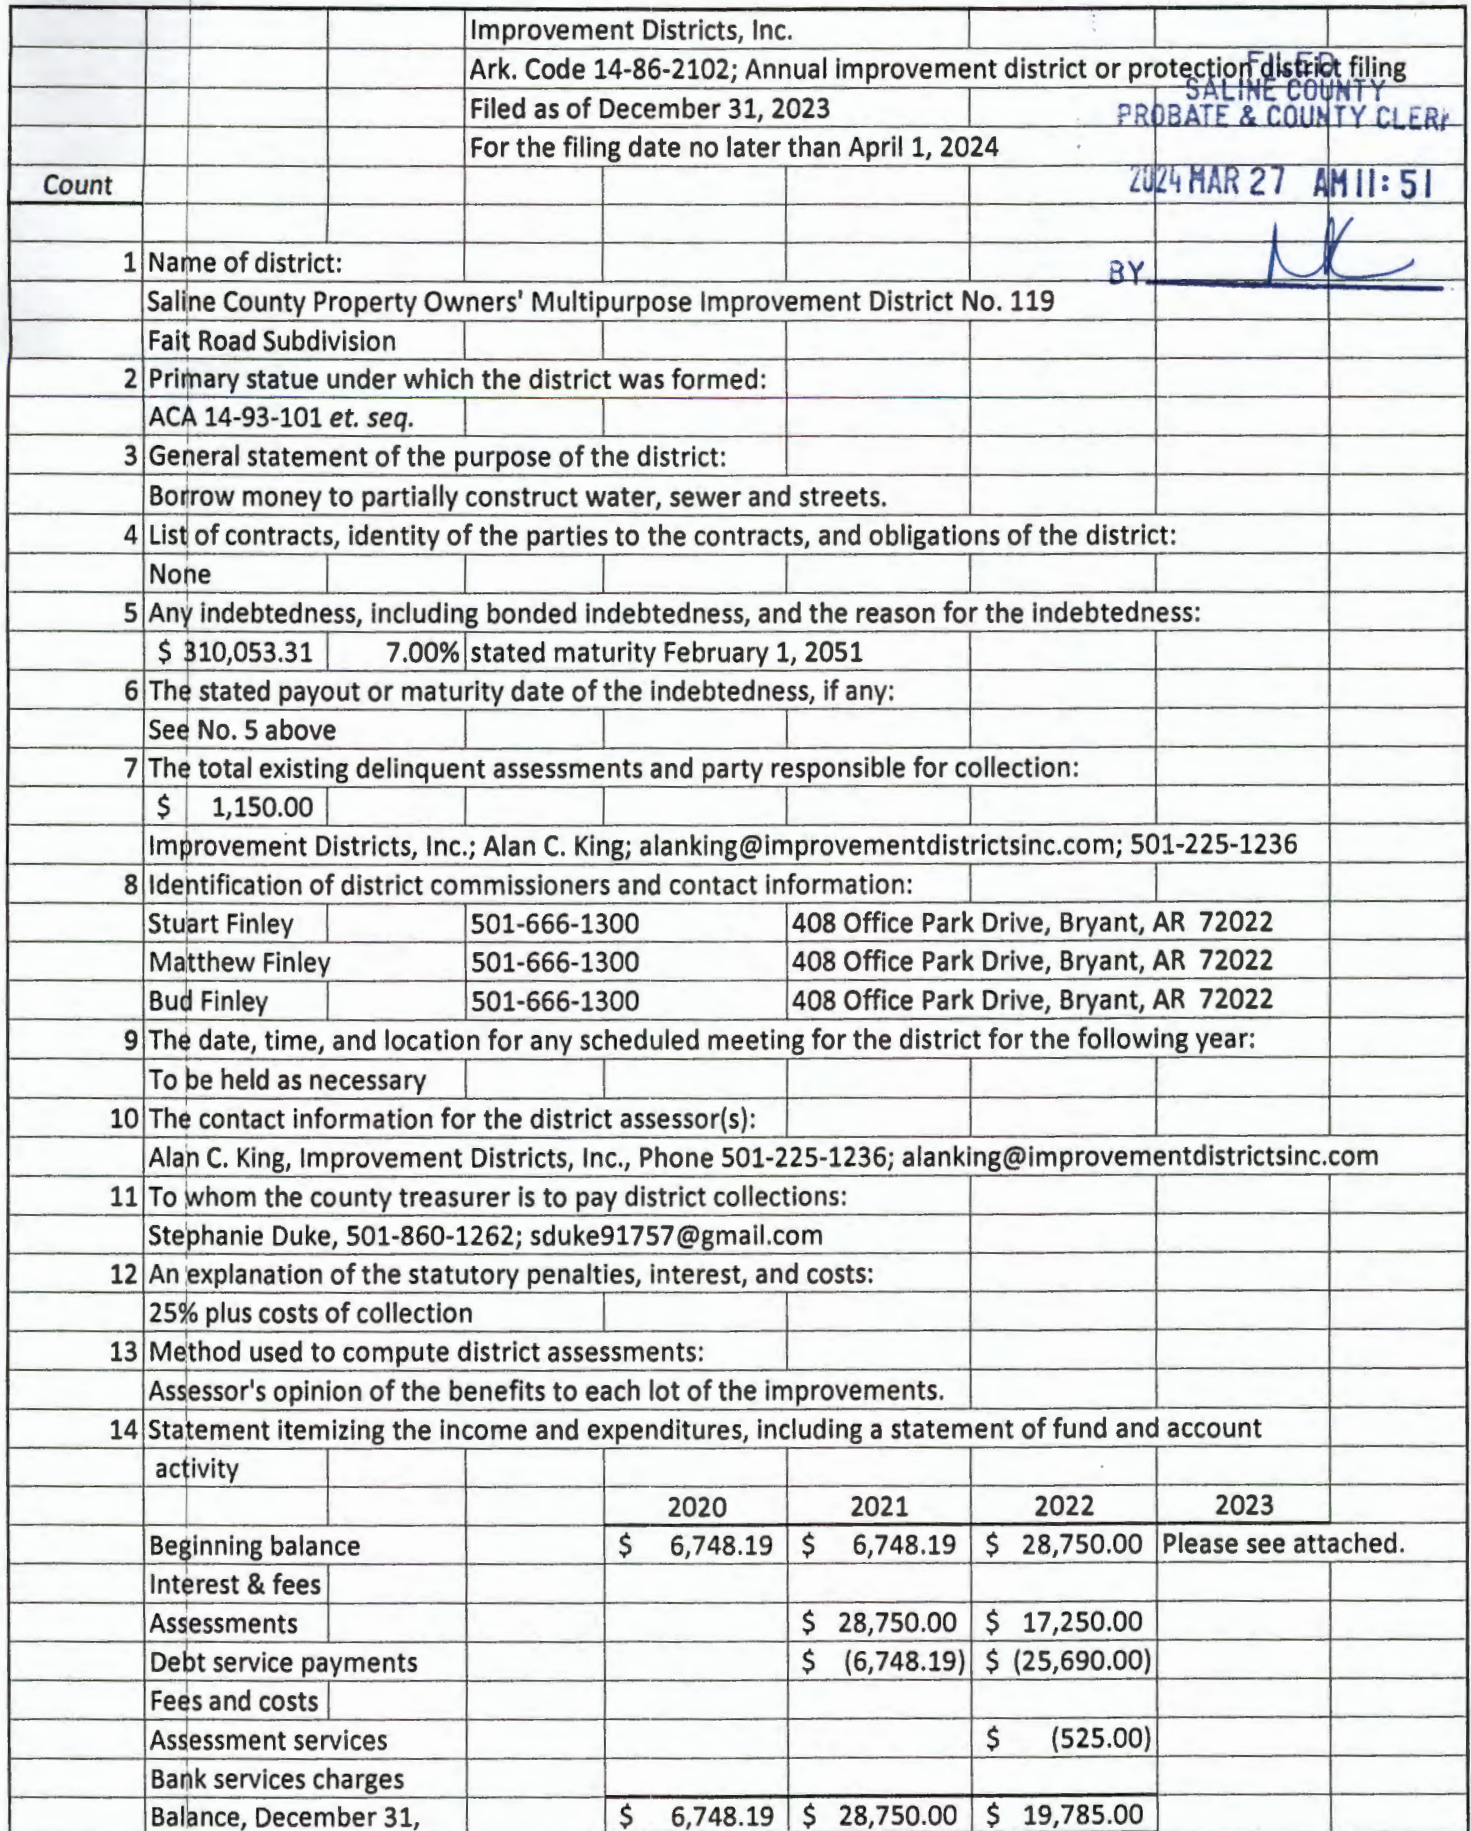 Improvement Districts, Inc.
Ark. Code 14-86-2102; Annual improvement district or protection district filing
FILED
SALINE COUNTY
Filed as of December 31, 2023
PROBATE & COUNTY CLERK
For the filing date no later than April 1, 2024
Count
2024 MAR 27 AM 11: 51
1 Name of district:
BY
Saline County Property Owners' Multipurpose Improvement District No. 119
Fait Road Subdivision
2 Primary statue under which the district was formed:
ACA 14-93-101 et. seq.
3 General statement of the purpose of the district:
Borrow money to partially construct water, sewer and streets.
4 List of contracts, identity of the parties to the contracts, and obligations of the district:
None
5 Any indebtedness, including bonded indebtedness, and the reason for the indebtedness:
$ 310,053.31 7.00% stated maturity February 1, 2051
6 The stated payout or maturity date of the indebtedness, if any:
See No. 5 above
7 The total existing delinquent assessments and party responsible for collection:
$ 1,150.00
Improvement Districts, Inc.; Alan C. King; alanking@improvementdistrictsinc.com; 501-225-1236
8 Identification of district commissioners and contact information:
Stuart Finley 501-666-1300 408 Office Park Drive, Bryant, AR 72022
Matthew Finley 501-666-1300 408 Office Park Drive, Bryant, AR 72022
Bud Finley 501-666-1300 408 Office Park Drive, Bryant, AR 72022
9 The date, time, and location for any scheduled meeting for the district for the following year:
To be held as necessary
10 The contact information for the district assessor(s):
Alan C. King, Improvement Districts, Inc., Phone 501-225-1236; alanking@improvementdistrictsinc.com
11 To whom the county treasurer is to pay district collections:
Stephanie Duke, 501-860-1262; sduke91757@gmail.com
12 An explanation of the statutory penalties, interest, and costs:
25% plus costs of collection
13 Method used to compute district assessments:
Assessor's opinion of the benefits to each lot of the improvements.
14 Statement itemizing the income and expenditures, including a statement of fund and account
activity
2020 2021 2022 2023
Beginning balance $ 6,748.19 $ 6,748.19 $ 28,750.00 Please see attached.
Interest & fees
Assessments $ 28,750.00 $ 17,250.00
Debt service payments $ (6,748.19) $ (25,690.00)
Fees and costs
Assessment services $ (525.00)
Bank services charges
Balance, December 31, $ 6,748.19 $ 28,750.00 $ 19,785.00